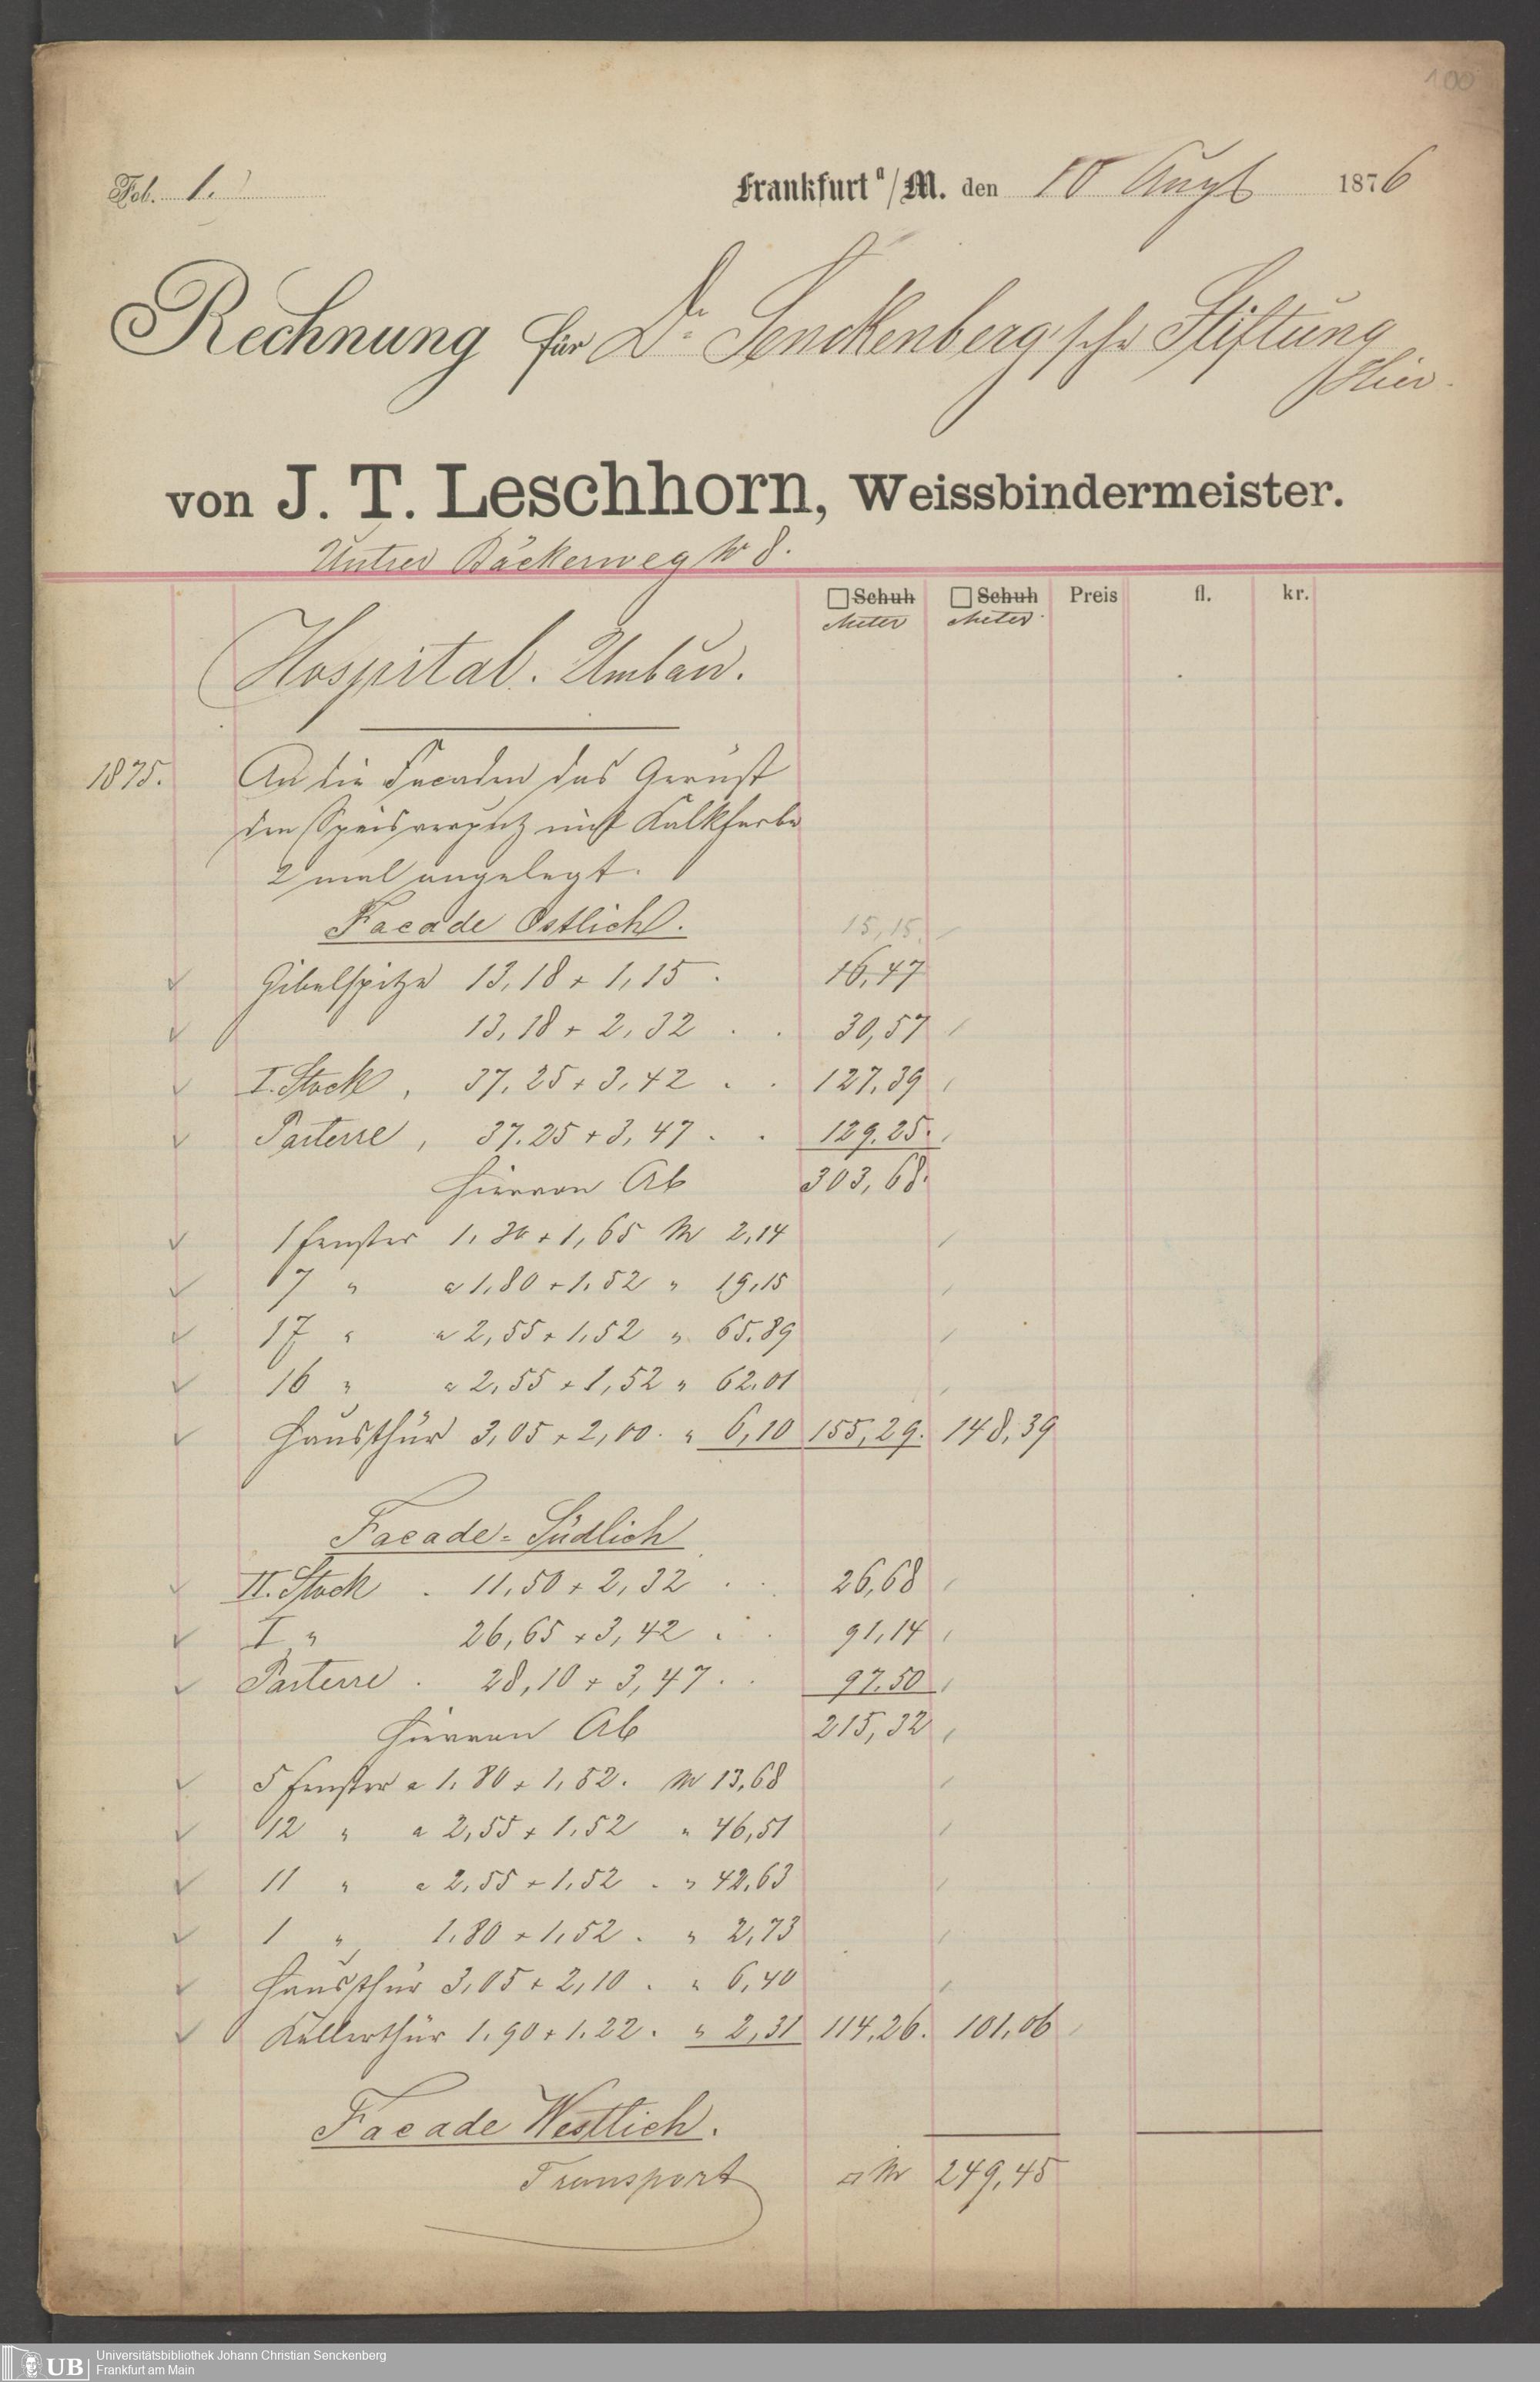 100
Fol. 1.
Frankfurt a/M. den 10 Augt 1876
Rechnung für Dr. Senckenberg'sche Stiftung
Hier.
von J. T. Leschhorn, Weissbindermeister.
Untrer Bäckerweg No 8.
□ Schuh □ Schuh Preis fl. kr.
Meter Meter
Hospital. Umbau.
1875. An die Facaden das Gerüst
den Speisverputz mit Kalkfarbe
2 mal angelegt.
Facade Östlich. 15,15.
Gibelspitze 13,18 + 1,15 . 16,47
13,18 + 2,32 . . 30,57
I. Stock, 37,25 + 3,42 . . 127,39
Parterre, 37.25 + 3,47 . . 129.25.
hiervon Ab 303,68.
1 Fenster 1,30 + 1,65 M 2,14
7 " a 1,80 + 1,52 " 19,15
17 " a 2,55 + 1,52 " 65.89
16 " a 2,55 + 1,52 " 62,01
Hausthür 3,05 + 2,00. " 6,10 155,29. 148,39
Facade-Südlich
II. Stock . 11,50 + 2,32 . . 26,68
I " 26,65 + 3,42 . . 91,14
Parterre . 28,10 + 3,47 . . 97.50
hiervon Ab 215,32
5 Fenster a 1,80 + 1,52. M 13,68
12 " a 2,55 + 1,52 " 46,51
11 " a 2,55 + 1,52 . " 42,63
1 " 1,80 + 1,52 . " 2,73
Hausthür 3,05 + 2,10 . " 6,40
Kellerthür 1.90 + 1.22 . " 2,31 114,26. 101,06
Facade Westlich.
Transport □ M 249,45
UB
Universitätsbibliothek Johann Christian Senckenberg
Frankfurt am Main